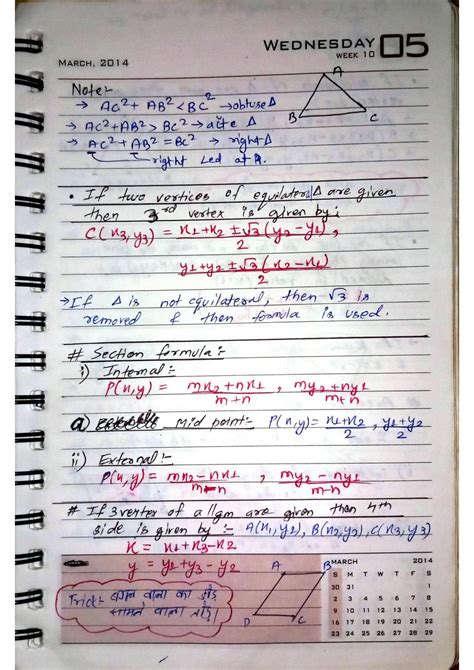 WEDNESDAY 05
WEEK 10
MARCH, 2014
Note:-
→ AC² + AB² < BC² → obtuse Δ
→ AC² + AB² > BC² → acute Δ
→ AC² + AB² = BC² → right Δ
right Led at A.
A
B
C
• If two vertices of equilateral Δ are given
then 3rd vertex is given by:
C(x3, y3) = x1+x2 ± √3(y2-y1) ,
2
y1+y2 ± √3(x2-x1)
2
→ If Δ is not equilateral, then √3 is
removed & then formula is used.
# Section formula :-
i) Internal :-
P(x,y) = mx2+nx1 , my2+ny1
m+n m+n
a) mid point:- P(x,y) = x1+x2 , y1+y2
2 2
ii) External :-
P(x,y) = mx2-nx1 , my2-ny1
m-n m-n
# If 3 verter of a llgm are given then 4th
side is given by :- A(x1,y1), B(x2,y2), C(x3,y3)
x = x1+x3-x2
y = y1+y3-y2
Trick:- वाला का जोड़
सामने वाला
A
B
D
C
MARCH 2014
S M T W T F S
30 31 1
2 3 4 5 6 7 8
9 10 11 12 13 14 15
16 17 18 19 20 21 22
23 24 25 26 27 28 29